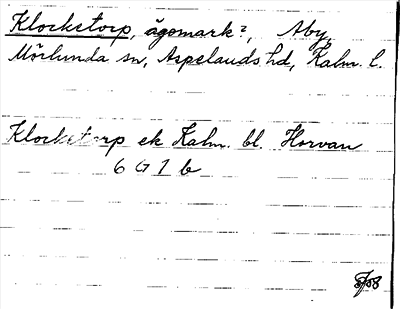 Klocketorp, ägomark?, Åby,
Mörlunda sn, Aspelands hd, Kalm. l.
Klocketorp ek Kalm. bl. Horvan
6 G 1 b